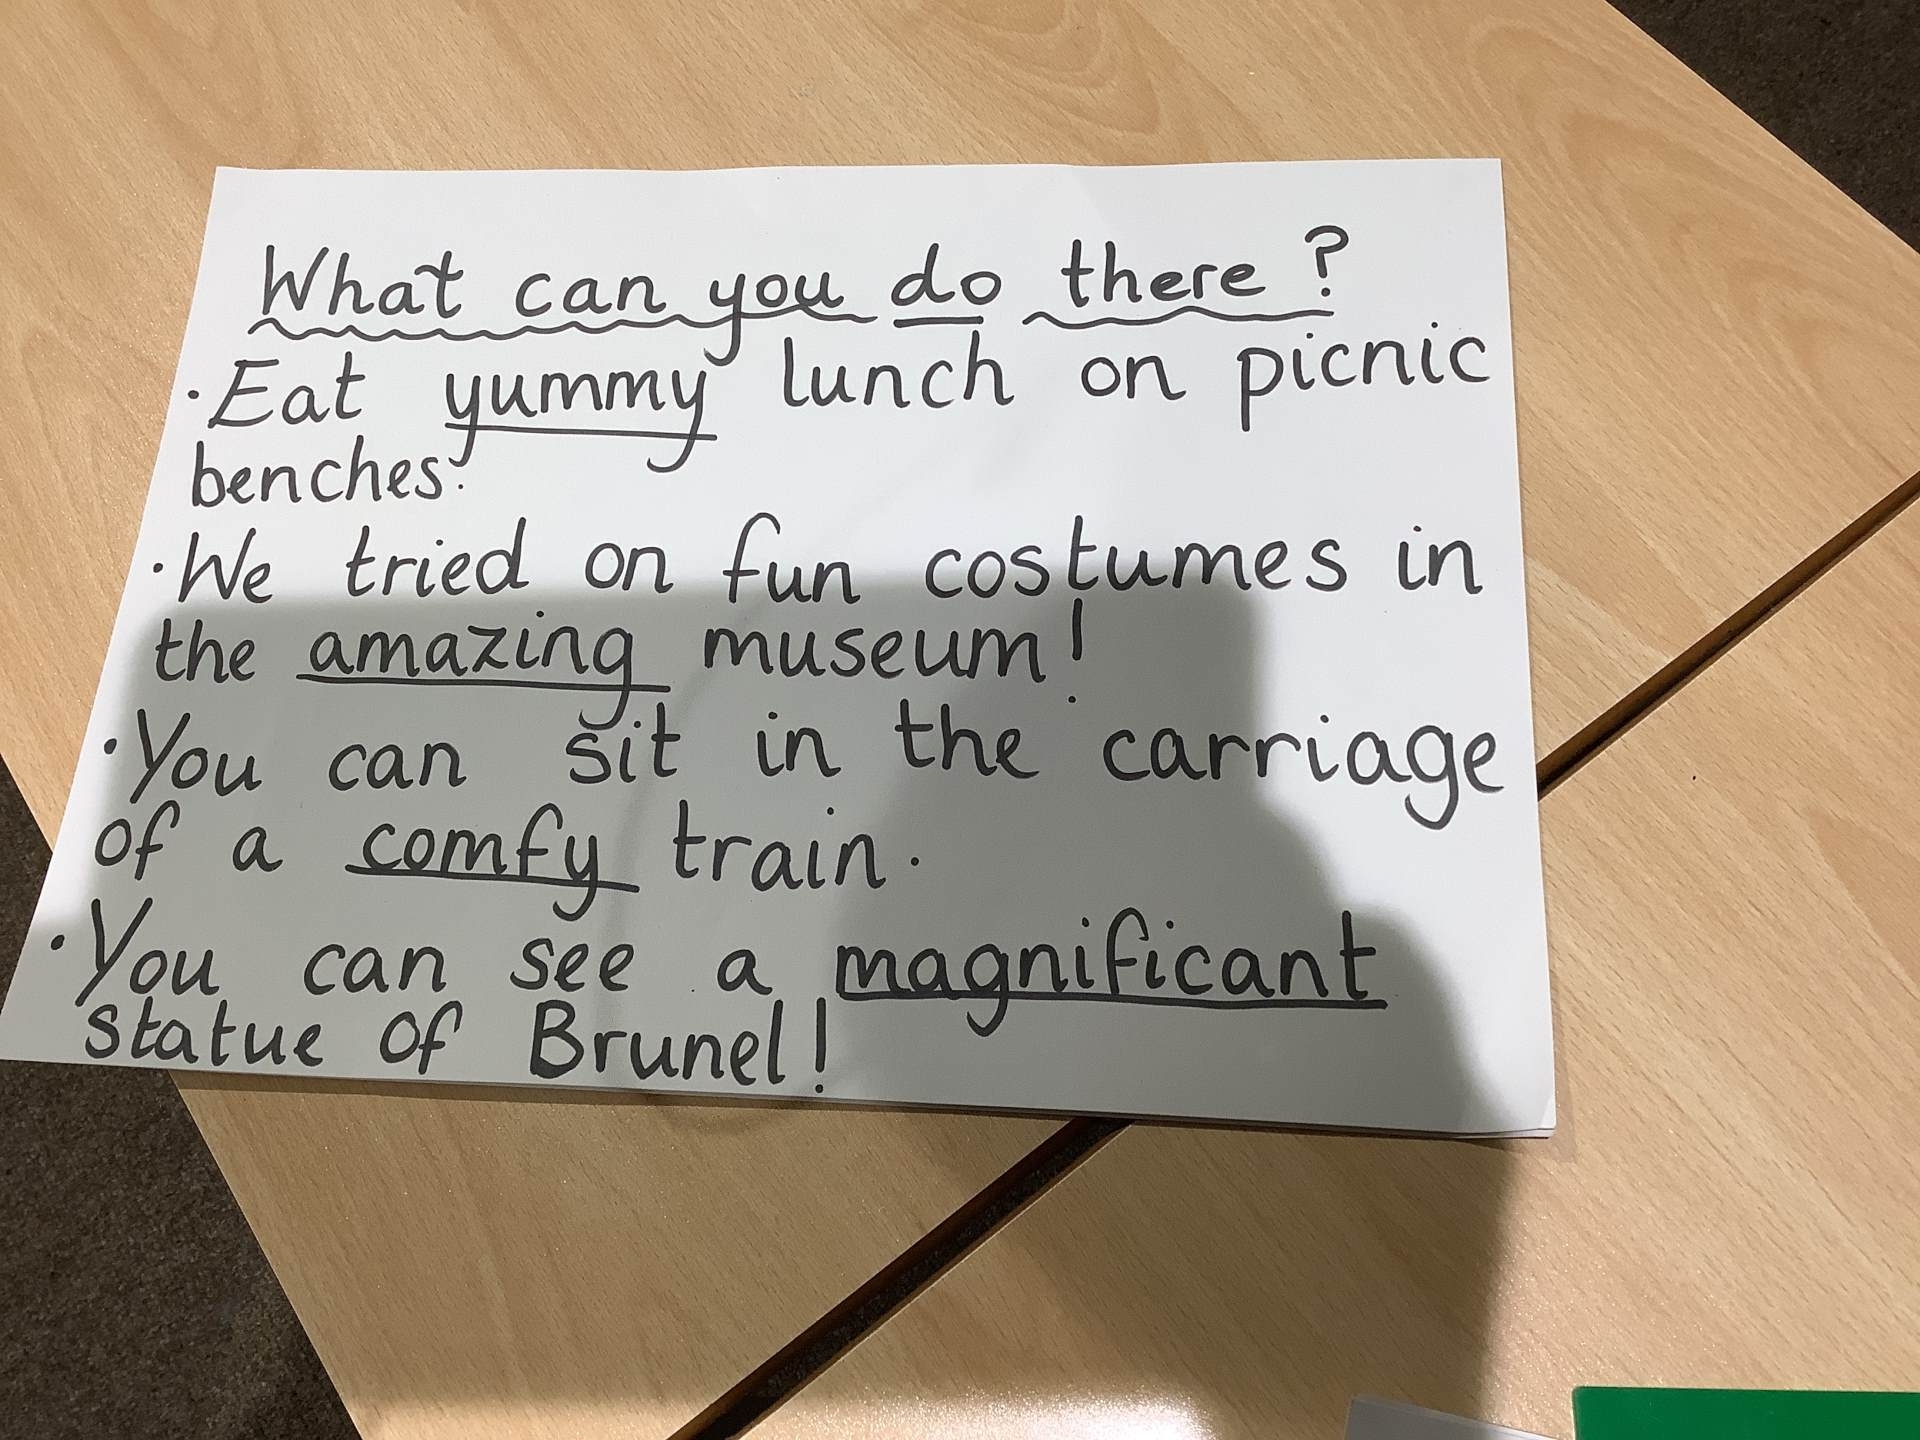 What can you do there?
·Eat yummy lunch on picnic
benches.
·We tried on fun costumes in
the amazing museum!
·You can sit in the carriage
of a comfy train.
·You can see a magnificant
statue of Brunel!